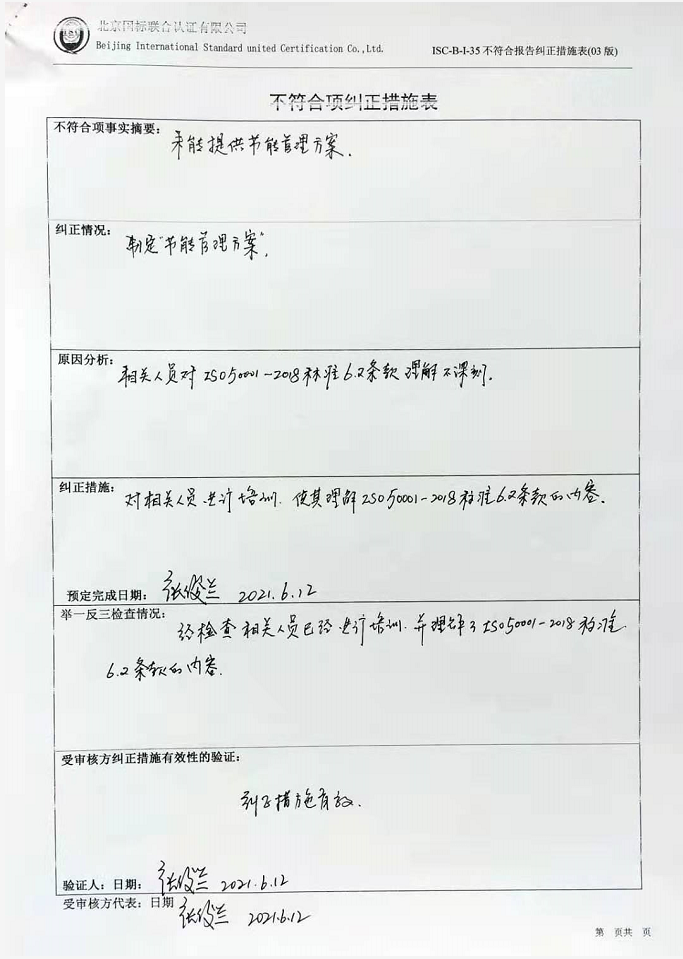 北京国标联合认证有限公司
Beijing International Standard united Certification Co.,Ltd.
ISC-B-I-35 不符合报告纠正措施表(03 版)
不符合项纠正措施表
不符合项事实摘要:
未能提供节能管理方案.
纠正情况:
制定"节能管理方案".
原因分析:
相关人员对 ISO50001-2018标准6.2条款 理解不深刻.
纠正措施:
对相关人员进行培训. 使其理解ISO50001-2018标准6.2条款的内容.
预定完成日期: 张俊兰 2021.6.12
举一反三检查情况:
经检查相关人员已经进行培训. 并理解了ISO50001-2018标准
6.2条款的内容.
受审核方纠正措施有效性的验证:
纠正措施有效.
验证人: 日期: 张俊兰 2021.6.12
受审核方代表: 日期 张俊兰 2021.6.12
第 页共 页